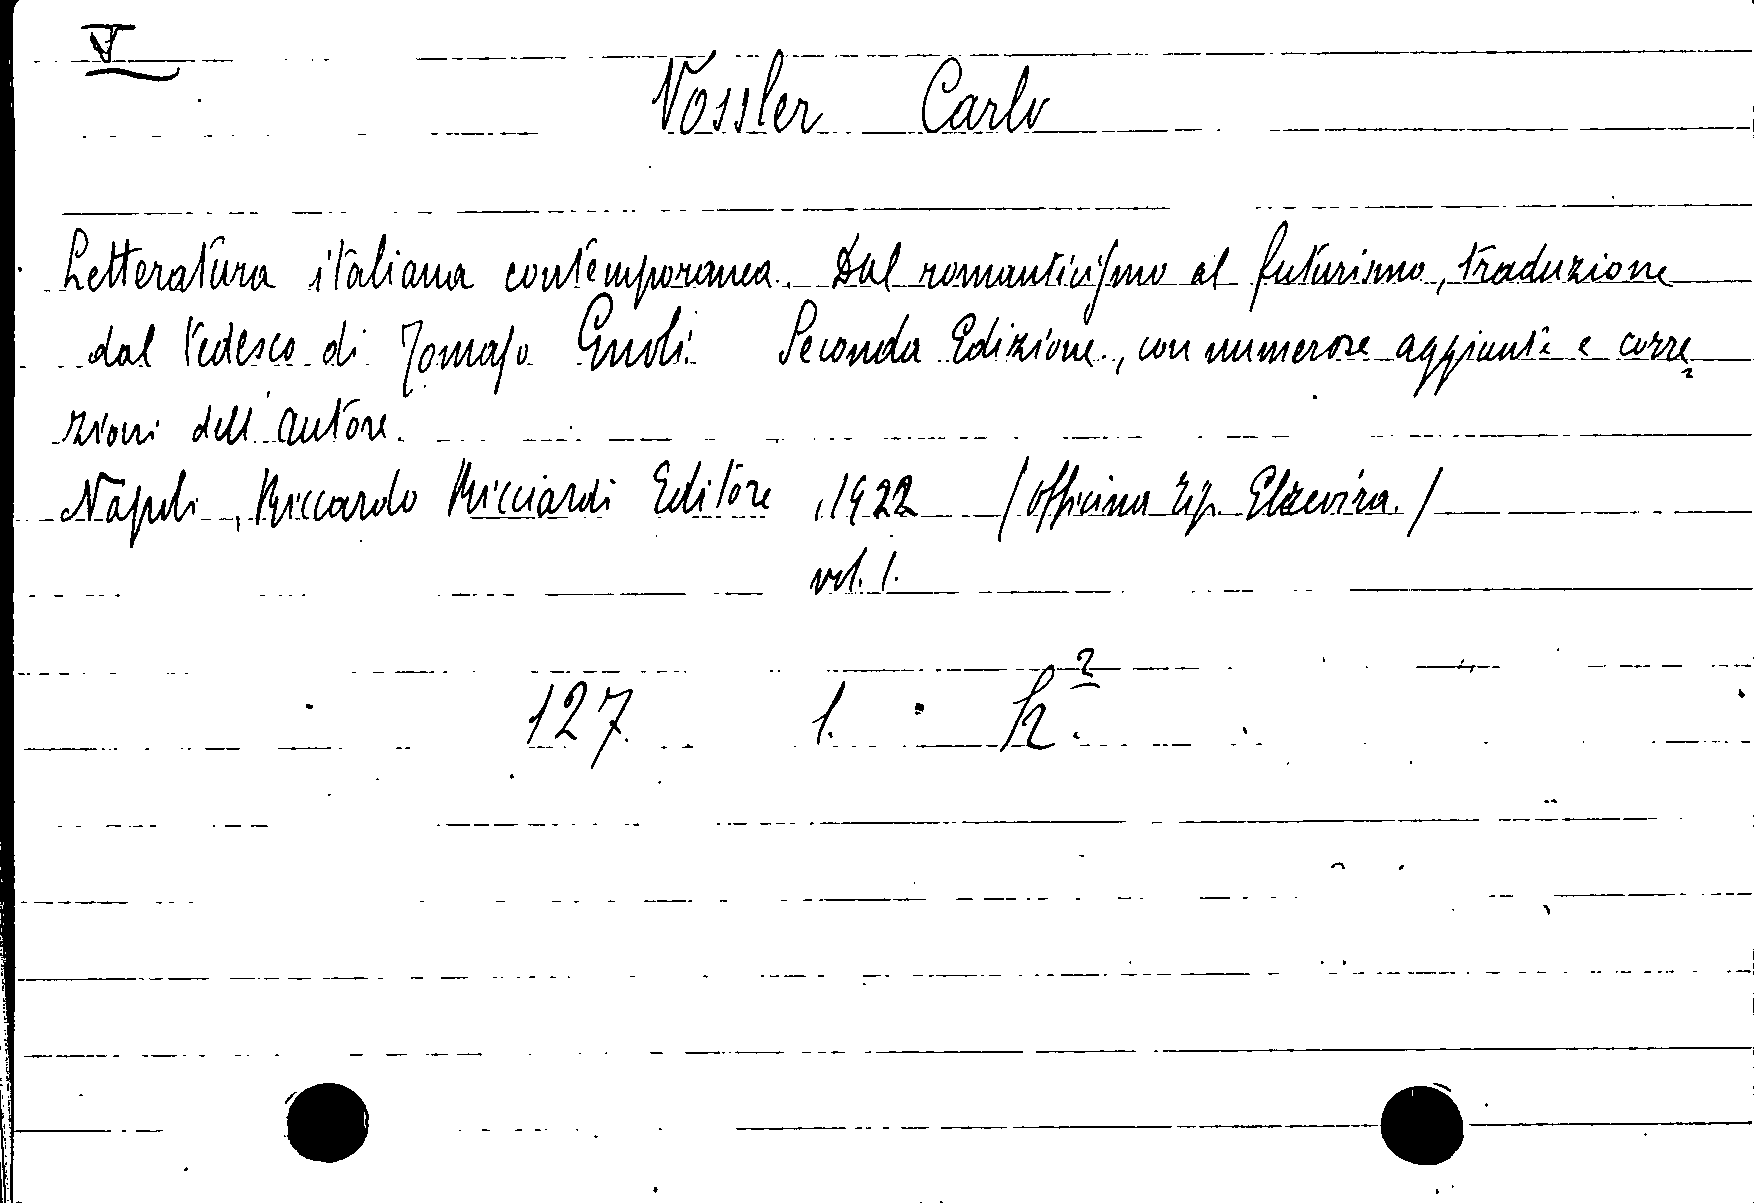 V
Vossler Carlo
Letteratura italiana contemporanea. Dal romanticismo al futurismo, traduzione
dal tedesco di Tomaso Gnoli. Seconda Edizione, con numerose aggiunte e corre
zioni dell'autore.
Napoli, Riccardo Ricciardi Editore, 1922 / Officina tip. Elzevira. /
vol. 1.
127. 1. h².